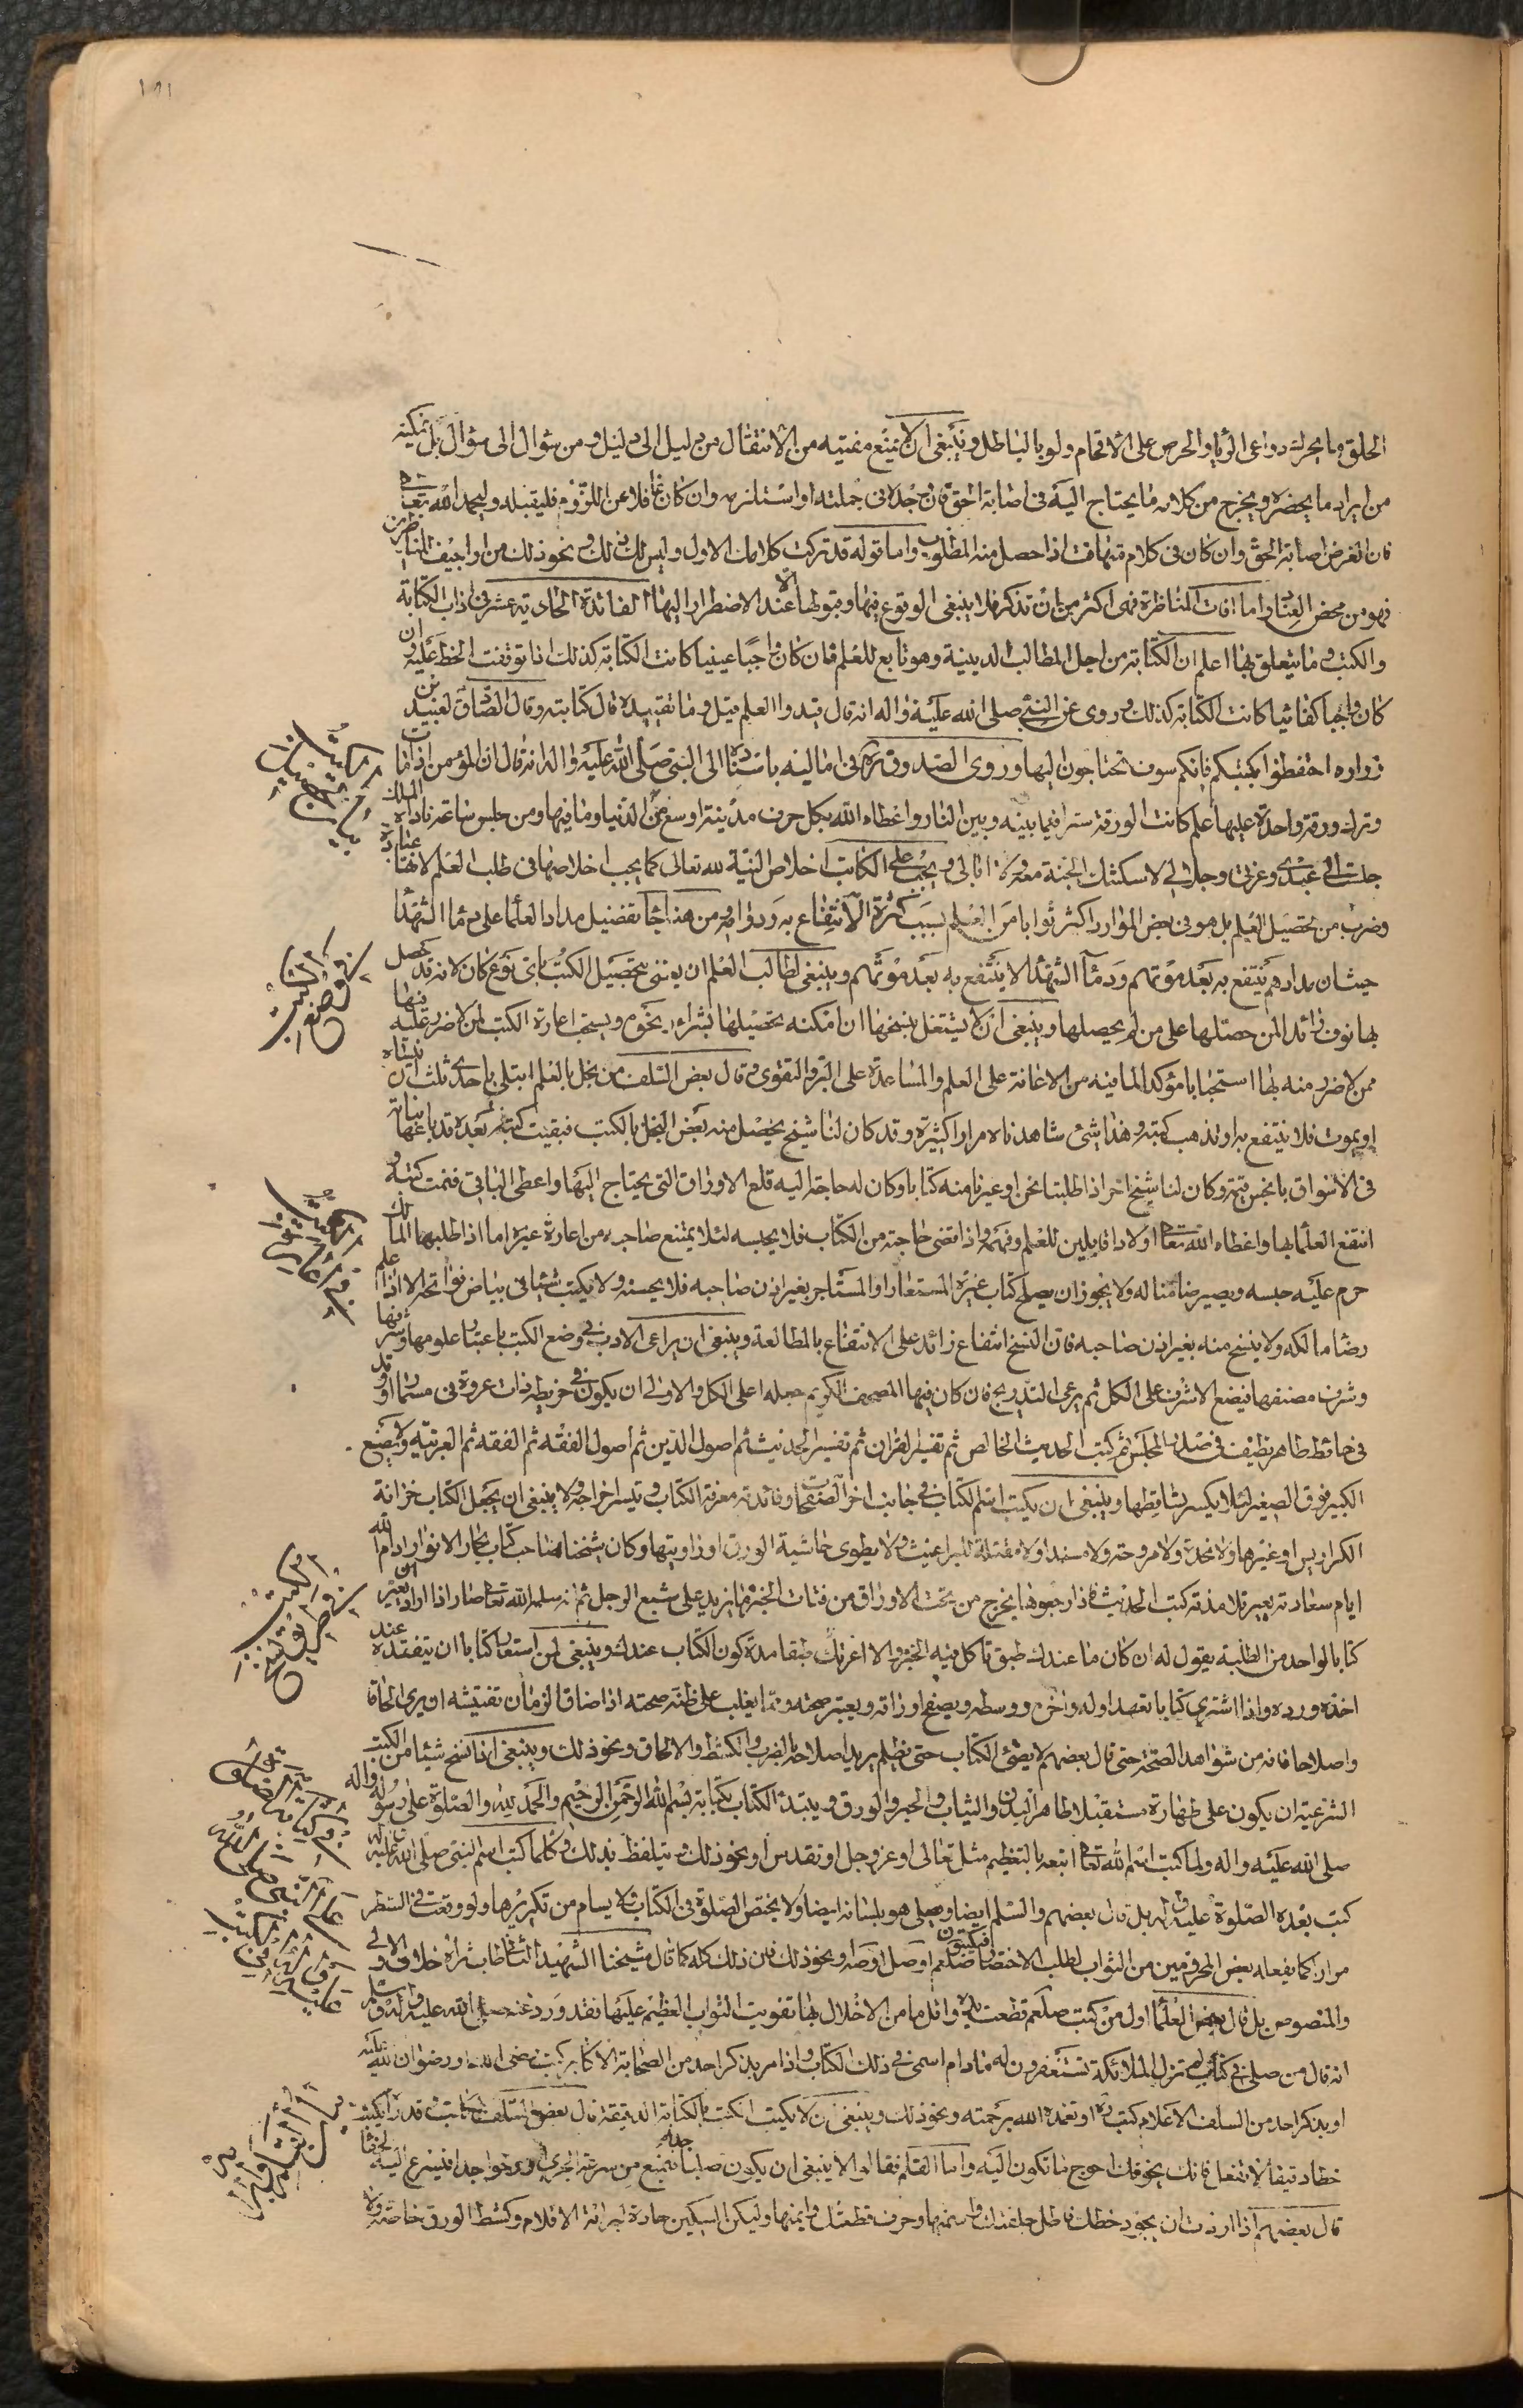 الخلق وما يحرك دواعى الريا والحرص على الافحام ولو بالباطل وينبغى ان لا يمنع معينه من الانتقال من دليل الى دليل ومن سؤال الى سؤال بل يمكنه
من ايراد ما يحضره ويخرج من كلامه ما يحتاج اليه فى اصابة الحق فان وجده فى جملته او استلزمه وان كان غافلا عن اللزوم فليقبله وليحمد الله تعالى
فان الغرض اصابة الحق وان كان فى كلام متهافت اذا حصل منه المطلوب واما قوله قد تركت كلامك الاول وليس لك ذلك ونحو ذلك من اراجيف المناظرين
فهو من محض العناد واما افات المناظرة فهى اكثر من ان تذكر فلا ينبغى الوقوع فيها وقبولها الا عند الاضطرار اليها الفائدة الحادية عشر فى اداب الكتابة
والكتب وما يتعلق بها اعلم ان الكتابة من اجل المطالب الدينية وهو تابع للعلم فان كان واجبا عينيا كانت الكتابة كذلك اذا توقفت الحفظ عليه وان
كان واجبا كفائيا كانت الكتابة كذلك وروى عن النبى صلى الله عليه واله انه قال قيدوا العلم قيل وما تقييده قال كتابته وقال الصادق لعبيد بن
زراره احتفظوا بكتبكم فانكم سوف تحتاجون اليها وروى الصدوق ره فى اماليه باسناده الى النبى صلى الله عليه واله انه قال ان المؤمن اذا مات
وترك ورقة واحدة عليها علم كانت الورقة سترا فيما بينه وبين النار واعطاه الله بكل حرف مدينة اوسع من الدنيا وما فيها ومن جلس ساعة ناداه الملك
جلست الى عبدى وعزتى وجلالى لاسكنتك الجنة معه ولا ابالى ويجب على الكاتب اخلاص النية لله تعالى كما يجب اخلاصها فى طلب العلم لانها عبادة
وضرب من تحصيل العلم بل هو فى بعض الموارد اكثر ثوابا من العلم بسبب كثرة الانتفاع به ودوامه ومن هنا جا تفضيل مداد العلما على دما الشهدا
حيث ان مدادهم ينتفع به بعد موتهم ودما الشهدا لا ينتفع به بعد موتهم وينبغى لطالب العلم ان يعتنى بتحصيل الكتب باى نوع كان لانه قد يحصل
بها فوق فوائد لمن حصلها على من لم يحصلها وينبغى ان لا يشتغل بنسخها ان امكنه تحصيلها بشراء ونحوه ويستحب اعارة الكتب لمن لا ضرر عليه فيها
ممن لا ضرر منه بها استحبابا مؤكدا لما فيه من الاعانة على العلم والمساعدة على البر والتقوى وقال بعض السلف من بخل بالعلم ابتلى باحدى ثلث ان ينساه
او يموت فلا ينتفع به او تذهب كتبه وهذا شئ شاهدناه مرارا كثيرة وقد كان لنا شيخ يحصل منه بعض البخل بالكتب فبقيت كتبه بعده قد باعها بناته
فى الاسواق بابخس قيمة وكان لنا شيخ اخر اذا طلبنا نحن او غيرنا منه كتابا وكان له حاجة اليه قلع الاوراق التى يحتاج اليها واعطى الباقى فنمت كتبه و
انتفع العلما بها واعطاه الله تعالى اولادا قابلين للعلم وفهمه واذا قضى حاجته من الكتاب فلا يحبسه لئلا يمتنع صاحبه من اعارة غيره اما اذا طلبها المالك
حرم عليه حبسه ويصير ضامنا له ولا يجوز ان يصلح كتاب غيره المستعار او المستاجر بغير اذن صاحبه فلا يحسنه ولا يكتب شيئا فى بياض فواتحه الا اذا علم
رضا مالكه ولا ينسخ منه بغير اذن صاحبه فان النسخ انتفاع زائد على الانتفاع بالمطالعة وينبغى ان يراعى الادب فى وضع الكتب باعتبار علومها وشرفها
وشرف مصنفها فيضع الاشرف على الكل ثم يرعى التدريج فان كان فيها المصحف الكريم جعله اعلى الكل والاولى ان يكون فى خريطة ذات عروة فى مسمار او وتد
فى حائط طاهر نظيف فى صدر المجلس ثم كتب الحديث الخالص ثم تفسير القران ثم تفسير الحديث ثم اصول الدين ثم اصول الفقه ثم الفقه ثم العربية ولا يضع
الكبير فوق الصغير لئلا يكسر تساقطها وينبغى ان يكتب اسم الكتاب فى جانب اخر الصفحات وفائدته معرفة الكتاب وتيسر اخراجه ولا ينبغى ان يجعل الكتاب خزانة
الكراريس او غيرها ولا مخدة ولا مروحة ولا مسندا ولا مقتلة للبراغيث ولا يطوى حاشية الورق او زاويتها وكان شيخنا صاحب كتاب بحار الانوار ادام الله
ايام سعادته يعير تلامذته كتب الحديث فاذا ارجعوها يخرج من تحت الاوراق من فتات الخبز ما يزيد على شبع الرجل ثم انه سلمه الله تعالى صار اذا اراد ان يعير
كتابا لواحد من الطلبة يقول له ان كان ما عندك طبق تاكل فيه الخبز والا اعرتك طبقا مدة كون الكتاب عندك وينبغى لمن استعار كتابا ان يتفقده عند
اخذه ورده واذا اشترى كتابا تعهد اوله واخره ووسطه ويصفح اوراقه ويعتبر صحته ومما يغلب على ظنه صحته اذا ضاق الزمان تفتيشه ان يرى الحاقا
واصلاحا فانه من شواهد الصحة حتى قال بعضهم لا يضئ الكتاب حتى يظلم يريد اصلاحه بالضرب والكشط والالحاق ونحو ذلك وينبغى اذا نسخ شيئا من الكتب
الشرعية ان يكون على طهارة مستقبلا طاهر البدن والثياب والحبر والورق ويبتدئ الكتاب بكتابة بسم الله الرحمن الرحيم والحمد لله والصلوة على رسوله واله
صلى الله عليه واله ولما كتب اسم الله تعالى اتبعه بالتعظيم مثل تعالى او عز وجل او تقدس او نحو ذلك ويتلفظ بذلك وكلما كتب اسم النبى صلى الله عليه واله
كتب بعده الصلوة عليه واله بل قال بعضهم والسلم ايضا ويصلى هو بلسانه ايضا ولا يختصر الصلوة فى الكتاب ولا يسام من تكريرها ولو وقعت فى السطر
مرارا كما يفعله بعض المحرومين من الثواب لطلب الاختصار فيكتبون صلعم او صل او صه ونحو ذلك فان ذلك كله كما قال شيخنا الشهيد الثانى طاب ثراه خلاف الاولى
والمنصوص بل قال بعض العلما اول من كتب صلعم قطعت يده واقل ما من الاخلال بها تفويت الثواب العظيم عليها فقد ورد عنه صلى الله عليه واله وسلم
انه قال من صلى فى كتاب لم تزل الملائكة تستغفرون له مادام اسمى فى ذلك الكتاب واذا مر بذكر احد من الصحابة الاكابر كتب رضى الله او رضوان الله عليه
او بذكر احد من السلف الاعلام كتب ره او تغمده الله برحمته ونحو ذلك وينبغى ان لا يكتب الكتب بالكتابة الدقيقة قال بعض السلف
خطا دقيقا لا تنفعا فانه يخونك احوج ما تكون اليه واما القلم فقالوا لا ينبغى ان يكون صلبا جدا يمنع من سرعة الجرى ولا رخوا جدا فيسرع اليه الحفا
قال بعضهم اذا اردت ان تجود خطك فاطل جلفتك واسمنها وحرف قطعتك وايمنها وليكن السكين حادة لبراية الاقلام وكشط الورق خاصة ولا